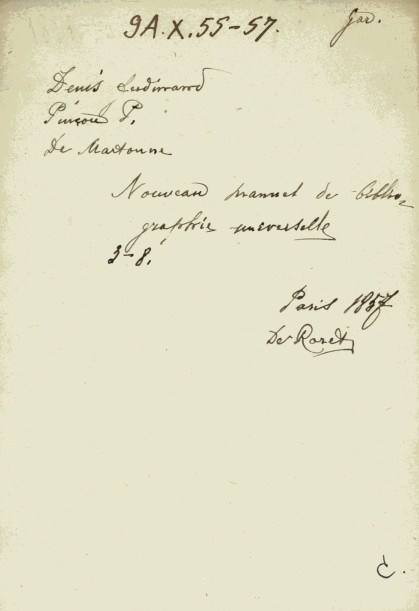 9A.X.55-57.
Gar.
Denis Ferdinand
Pinçon P.
De Martonne
Nouveau manuel de biblio-
graphie universelle
3-8.
Paris 1857
De Roret
C.